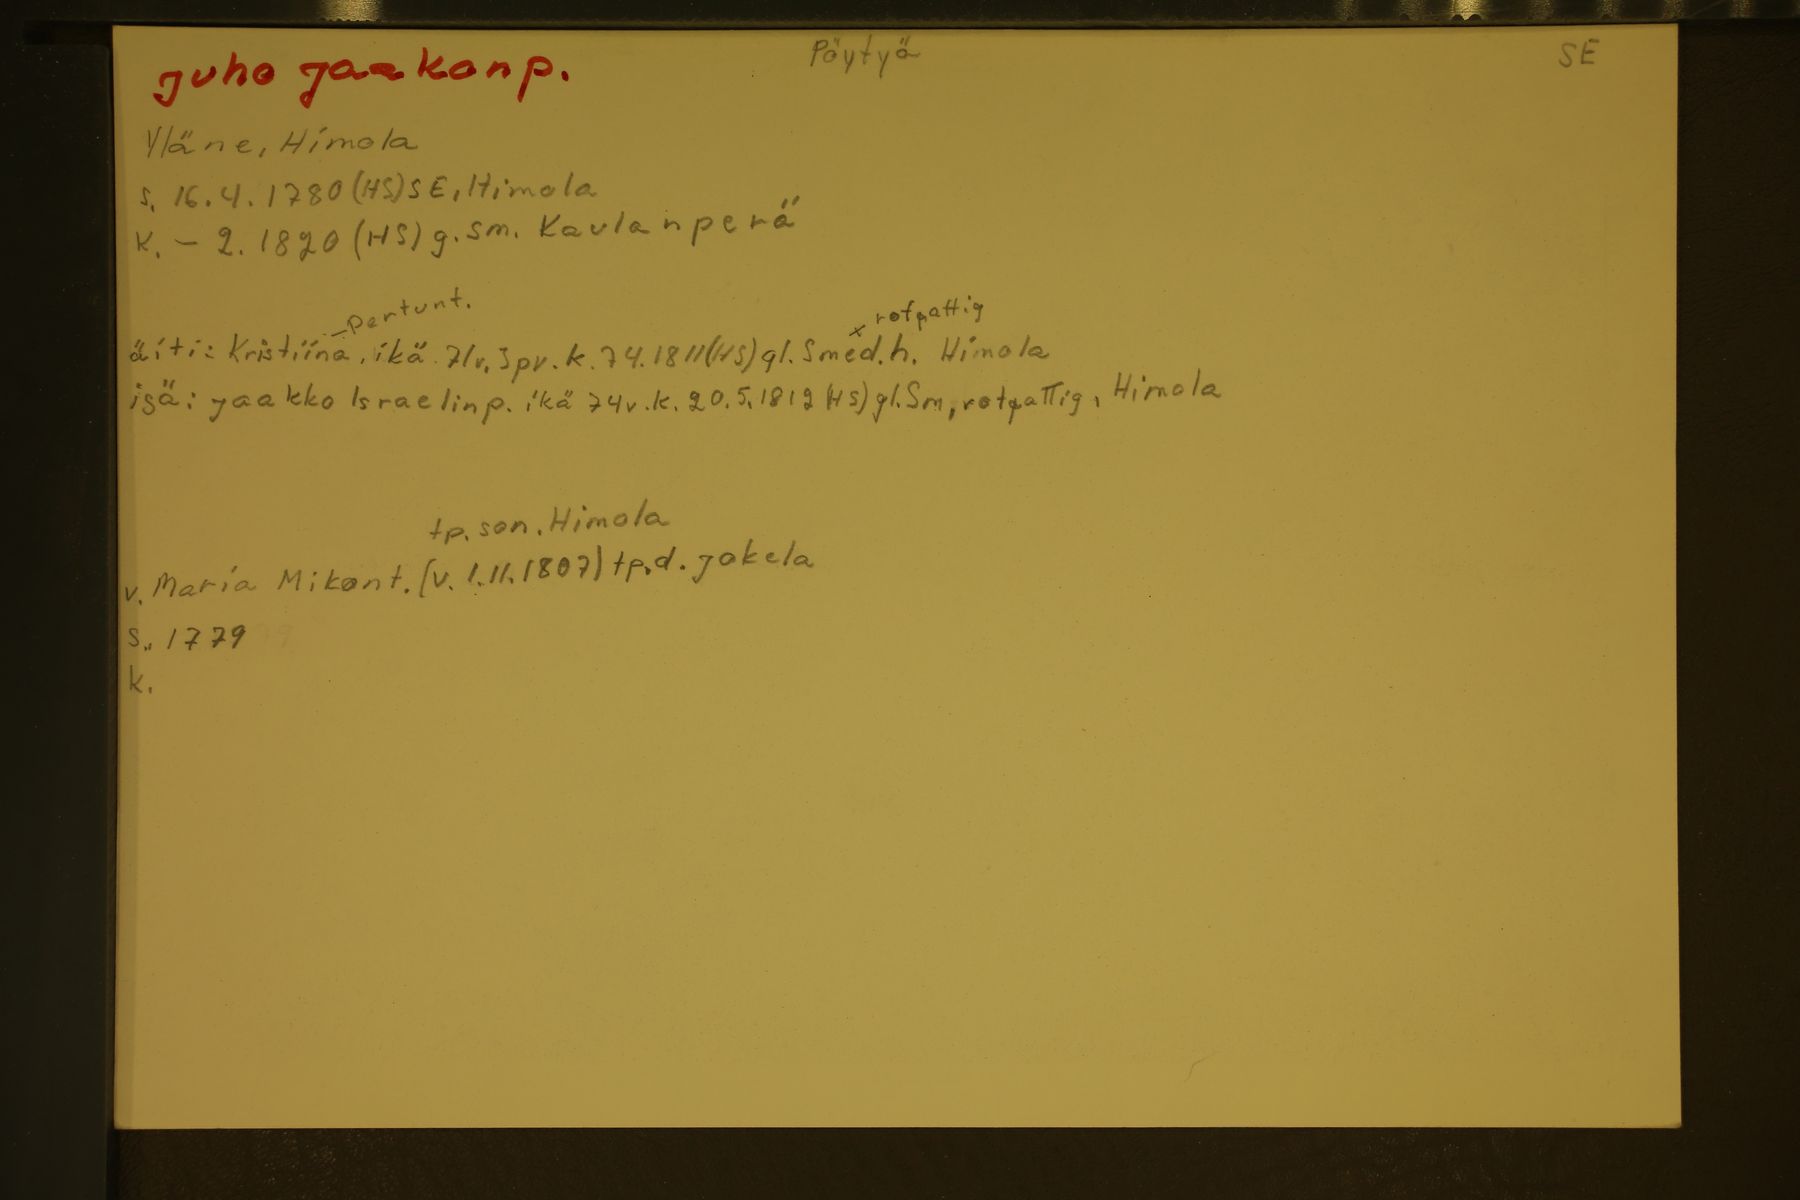 Juho Jaakonp.
Pöytyä
SE
Yläne, Himola
s. 16.4.1780 (HS) SE, Himola
k. – 2.1820 (HS) g. Sm. Kaulanperä
– Pertunt.
x rotfattig
äiti: Kristiina, ikä 71v. 3pv. k. 7 4.1811 (HS) gl. Smed.h. Himola
isä: Jaakko Israelinp. ikä 74v. k. 20.5.1812 (HS) gl. Sm, rotfattig, Himola
tp. son. Himola
v. Maria Mikont. (v. 1.11.1807) tp.d. Jakela
s. 1779
k.